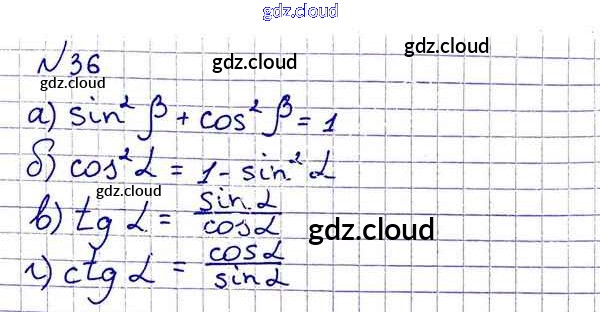 gdz.cloud
gdz.cloud
№36 gdz.cloud gdz.cloud
gdz.cloud
а) sin² β + cos² β = 1
gdz.cloud
б) cos² α = 1 - sin² α
gdz.cloud
в) tg α = sin α / cos α
gdz.cloud
г) ctg α = cos α / sin α